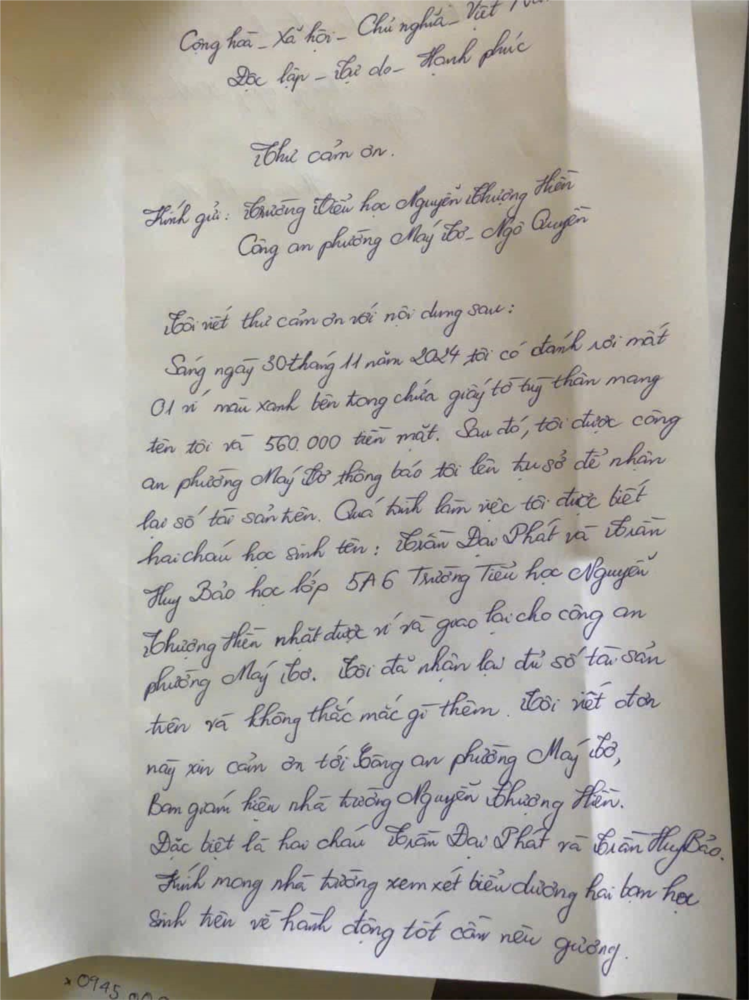 Cộng hoà - Xã hội - Chủ nghĩa - Việt
Độc lập - Tự do - Hạnh phúc
Thư cảm ơn.
Kính gửi: Trường Tiểu học Nguyễn Thượng Hiền
Công an phường Máy Tơ - Ngô Quyền
Tôi viết thư cảm ơn với nội dung sau:
Sáng ngày 30 tháng 11 năm 2024 tôi có đánh rơi mất
01 ví màu xanh bên trong chứa giấy tờ tuỳ thân mang
tên tôi và 560.000 tiền mặt. Sau đó, tôi được công
an phường Máy Tơ thông báo tôi lên trụ sở để nhận
lại số tài sản trên. Quá trình làm việc tôi được biết
hai cháu học sinh tên: Trần Đại Phát và Trần
Huy Bảo học lớp 5A6 Trường Tiểu học Nguyễn
Thượng Hiền nhặt được ví và giao lại cho công an
phường Máy Tơ. Tôi đã nhận lại đủ số tài sản
trên và không thắc mắc gì thêm. Tôi viết đơn
này xin cảm ơn tới Công an phường Máy Tơ,
Ban giám hiệu nhà trường Nguyễn Thượng Hiền.
Đặc biệt là hai cháu Trần Đại Phát và Trần Huy Bảo.
Kính mong nhà trường xem xét biểu dương hai bạn học
sinh trên về hành động tốt cần nêu gương.
0945